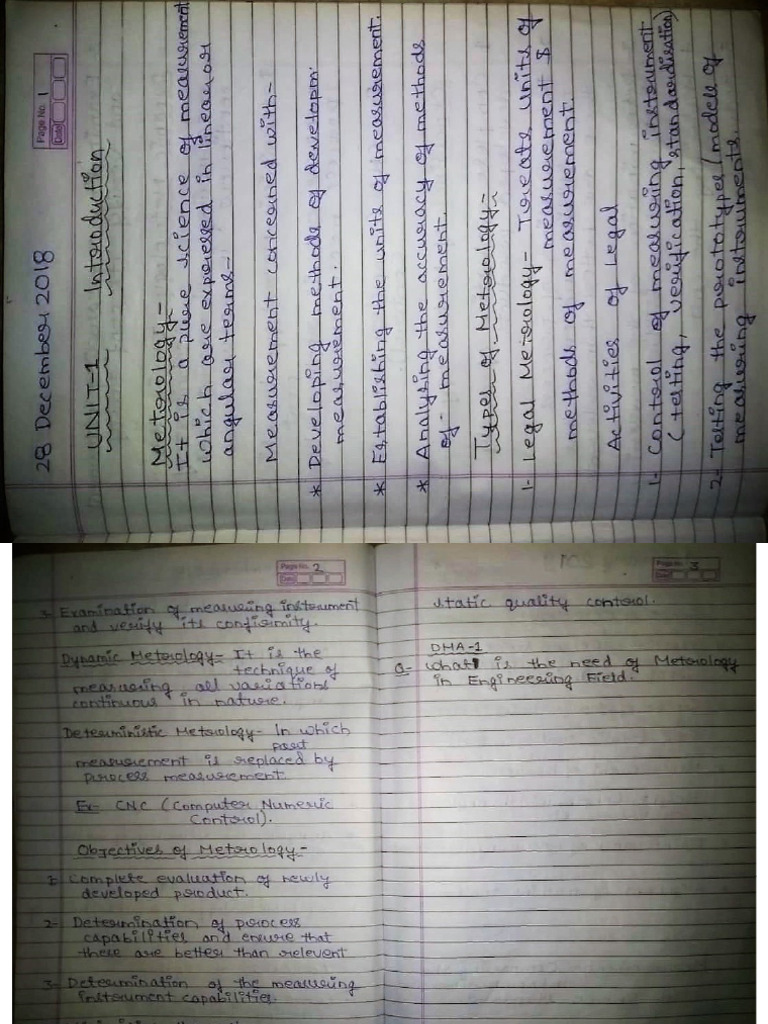 Page No. 1
Date
28 December 2018
UNIT-1 Introduction
Metrology-
It is a pure science of measurement
which are expressed in linear or
angular terms-
Measurement concerned with-
* Developing methods of developm.
measurement.
* Establishing the units of measurement.
* Analysing the accuracy of methods
of measurement.
Types of Metrology-
1- Legal Metrology- Treats units of
measurement &
methods of measurement.
Activities of Legal
1- Control of measuring instrument
(testing, verification, standardisation)
2- Testing the prototypes/models of
measuring instruments.
Page No. 2
Date
3- Examination of measuring instrument
and verify its confirmity.
Dynamic Metrology- It is the
technique of
measuring all variations
continuous in nature.
Deterministic Metrology- In which
part
measurement is replaced by
process measurement.
Ex- CNC (Computer Numeric
Control).
Objectives of Metrology-
1- Complete evaluation of newly
developed product.
2- Determination of process
capabilities and ensure that
these are better than relevent
3- Determination of the measuring
instrument capabilities.
Page No. 3
Date
static quality control.
DMA-1
Q- What is the need of Metrology
in Engineering Field.